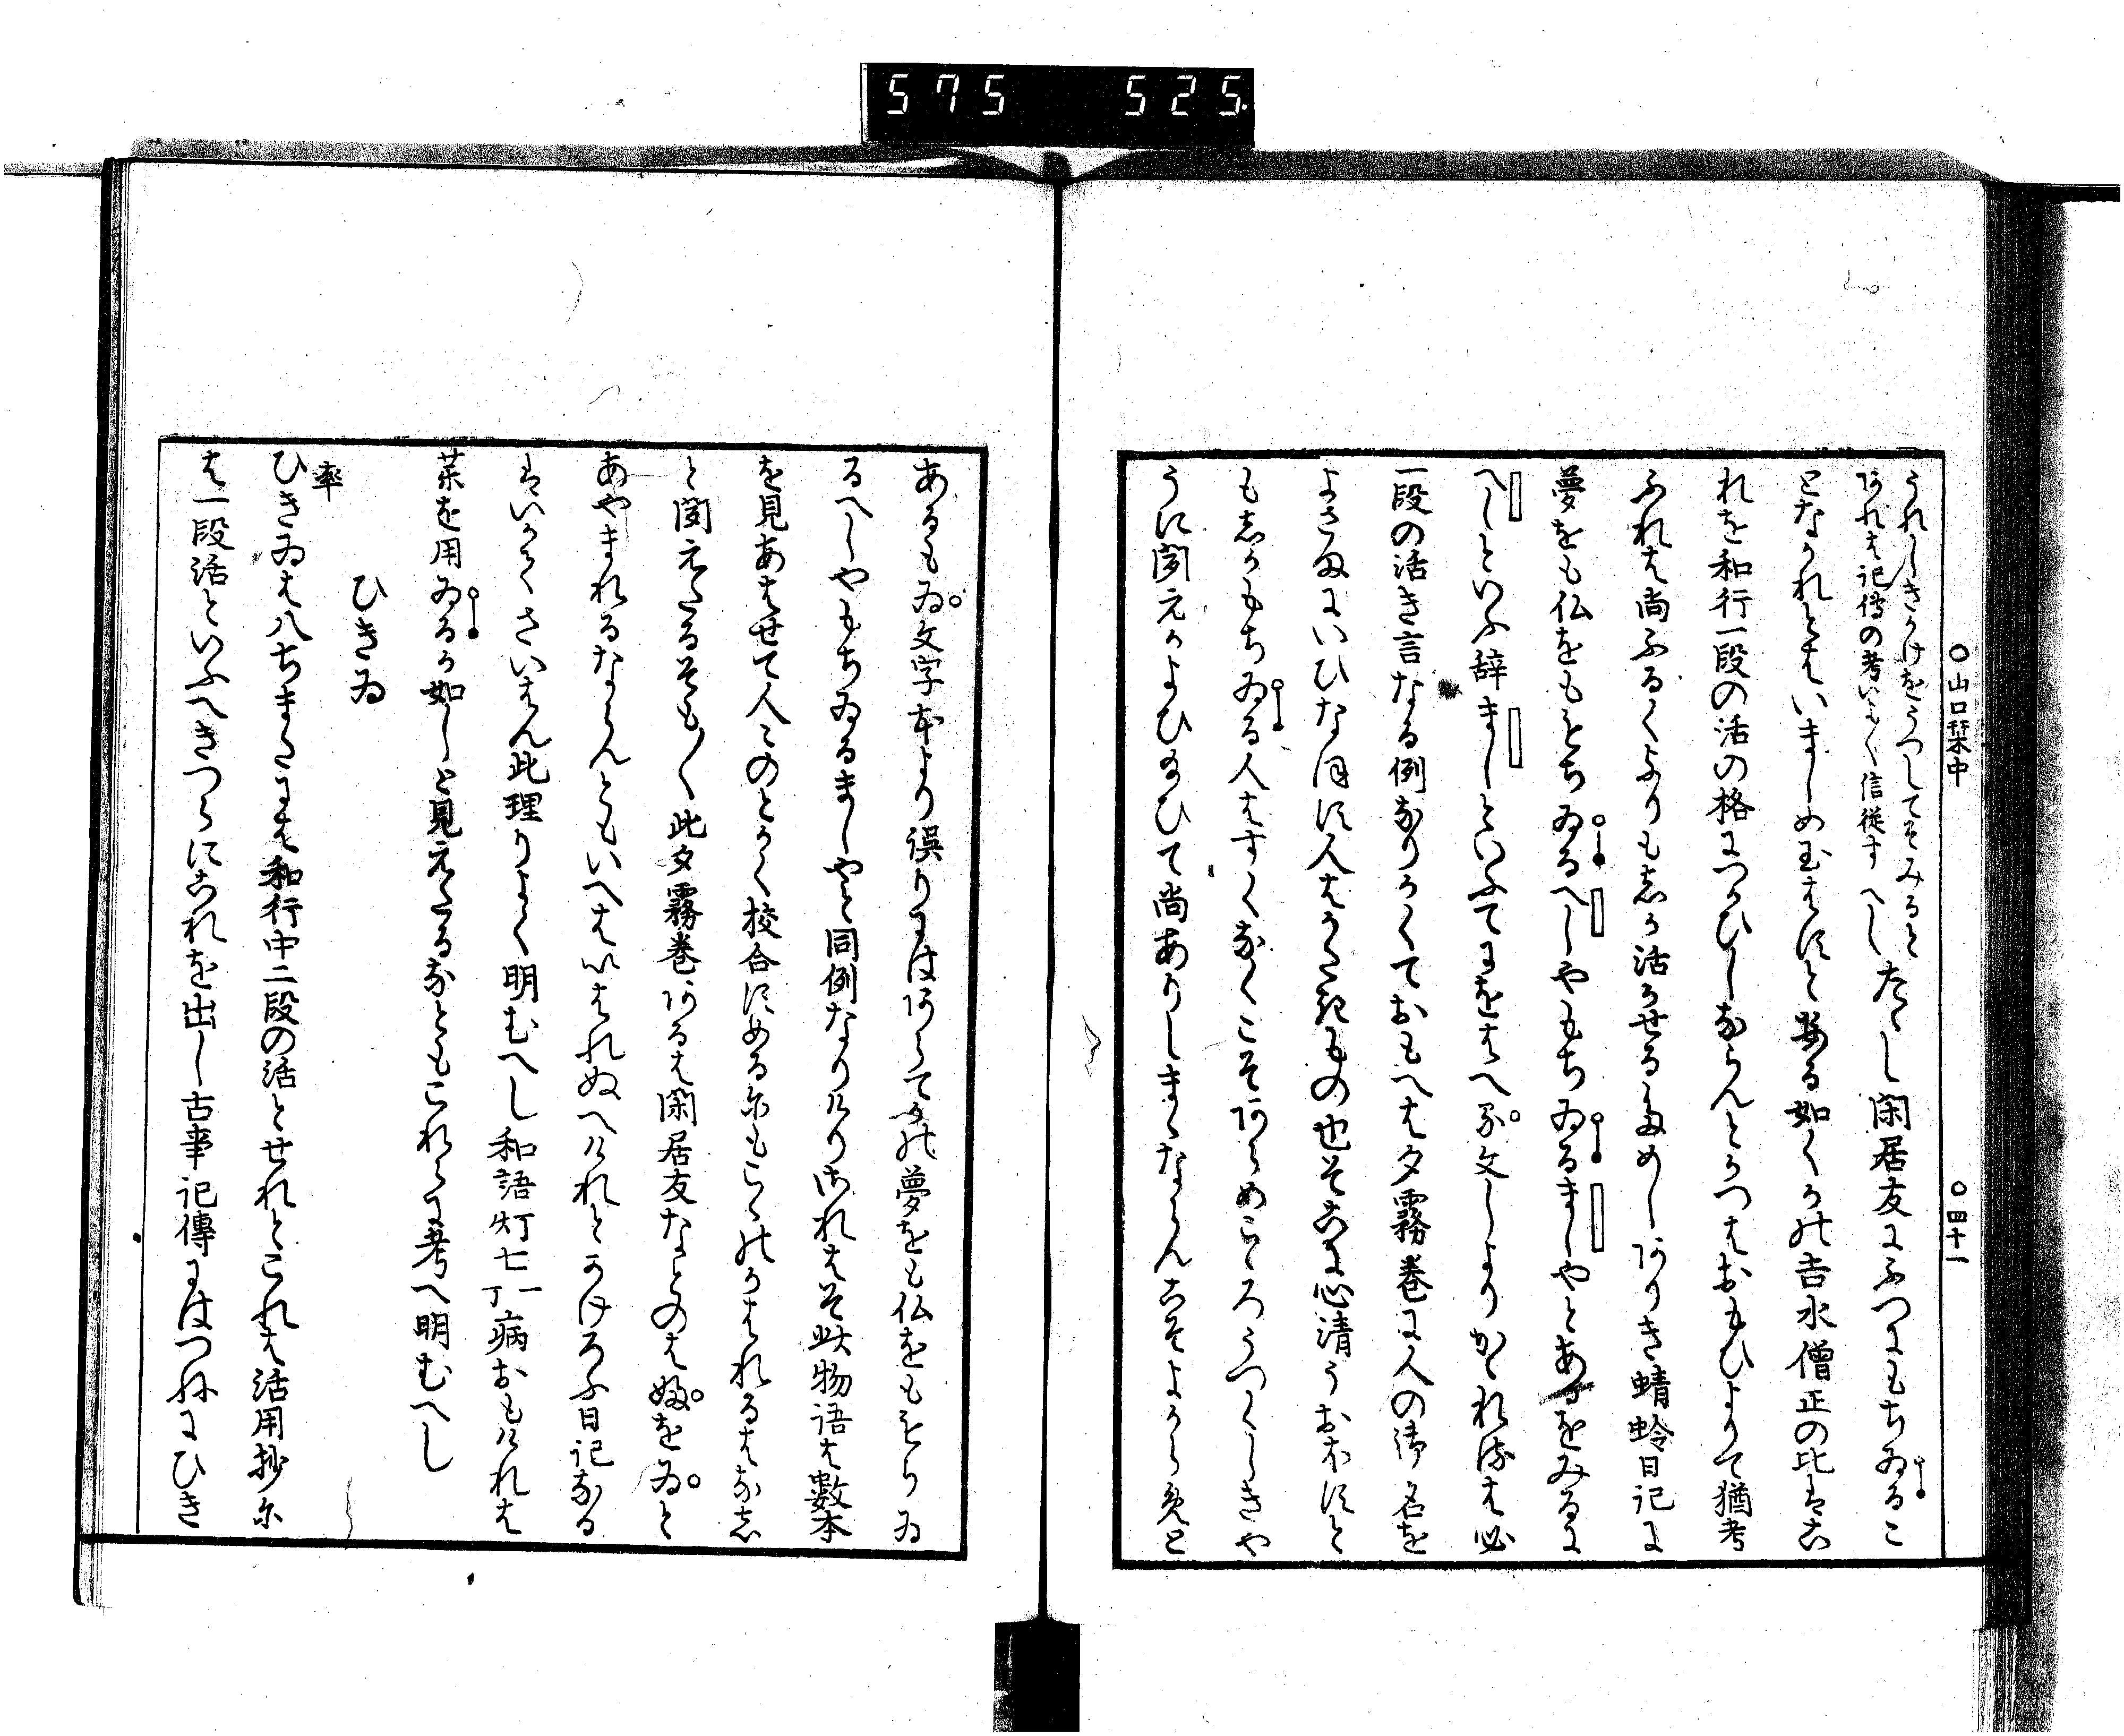 575 525
〇山口栞中 〇四十一
うれしきかけをうつしてそみると
アれは記傳の考いよく信從すへし たゝし閑居友にふつにもちゐるこ
となかれとそいましめ玉はすと
吉水僧正の比
れを和行一段の活の格につかひしならんとかつはおもひよりて猶考
ふれは尚ふるくよりもしか活かせるためしアりき蜻蛉日記に
夢をも仏をももちゐるへしやもちゐるましやとあるをみるに
へしといふ辞ましといふてにをはへ
文しよりかゝれは必
一段の活き言なる例なりかくておもへは夕霧巻に人の御名を
よさまにいひなほす人はかたきもの也そこに心清うおほすと
もしかもちゐる人はすくなくこそアらめこゝろうつくしきや
うに聞えかよひ給ひて尚ありしまゝならんこそよからめと
あるもゐ文字本より誤りにはアらてかの夢をも仏をももちゐ
るへしやもちゐるましやと同例なりけりされはそ此物語は數本
を見あはせて人々のとかく校合
と聞えたるそも〳〵此夕霧巻アるは閑居友なとのは
をゐと
あやまれるならんともいへはいはれぬへけれとかけろふ日記なる
はいかてさいはん此理りよく明むへし和語灯七一丁病おもけれは
薬を用ゐるか如しと見えたるなともこれらに考へ明むへし
ひきゐ
率
ひきゐは八ちまたには和行中二段の活とせれとこれは活用抄に
は一段活といふへきつらにこれを出し古事記傳にはつねにひき